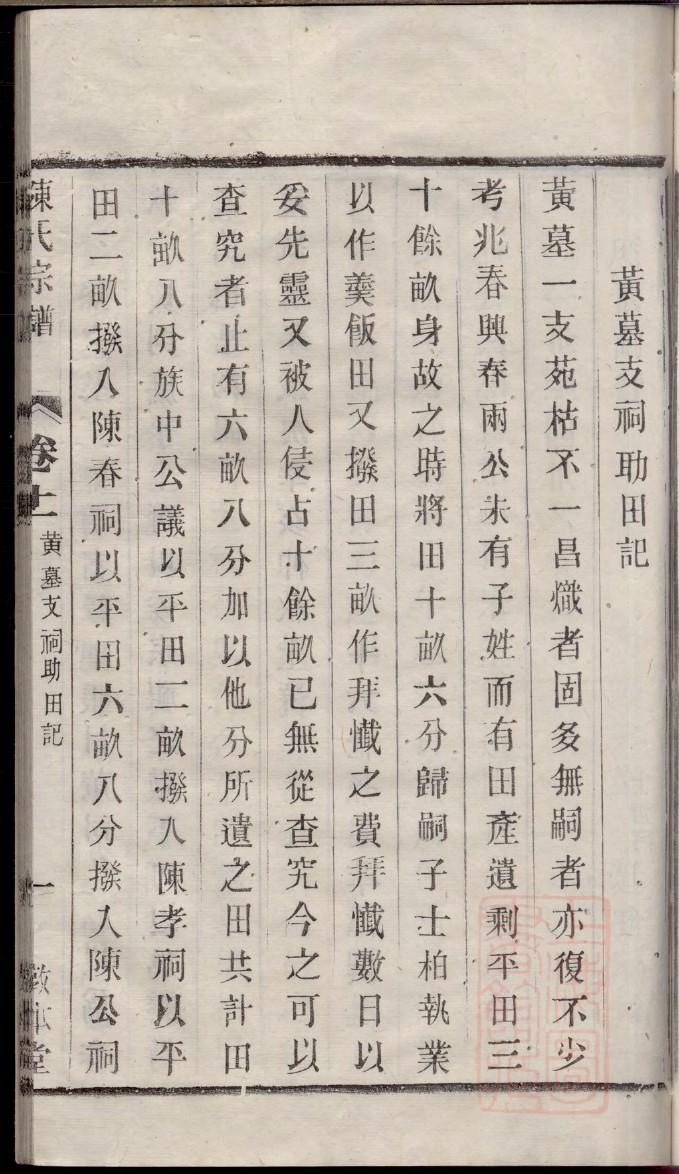 黃墓支祠助田記
黃墓一支苑枯不一昌熾者固多無嗣者亦復不少
考兆春興春兩公未有子姓而有田產遺剩平田三
十餘畝身故之時將田十畝六分歸嗣子士柏執業
以作羮飯田又撥田三畝作拜懺之費拜懺數日以
妥先靈又被人侵占十餘畝已無從查究今之可以
查究者止有六畝八分加以他分所遺之田共計田
十畝八分族中公議以平田二畝撥入陳孝祠以平
田二畝撥入陳春祠以平田六畝八分撥入陳公祠
陳氏宗譜
卷十一
黃墓支祠助田記
一
敦本堂